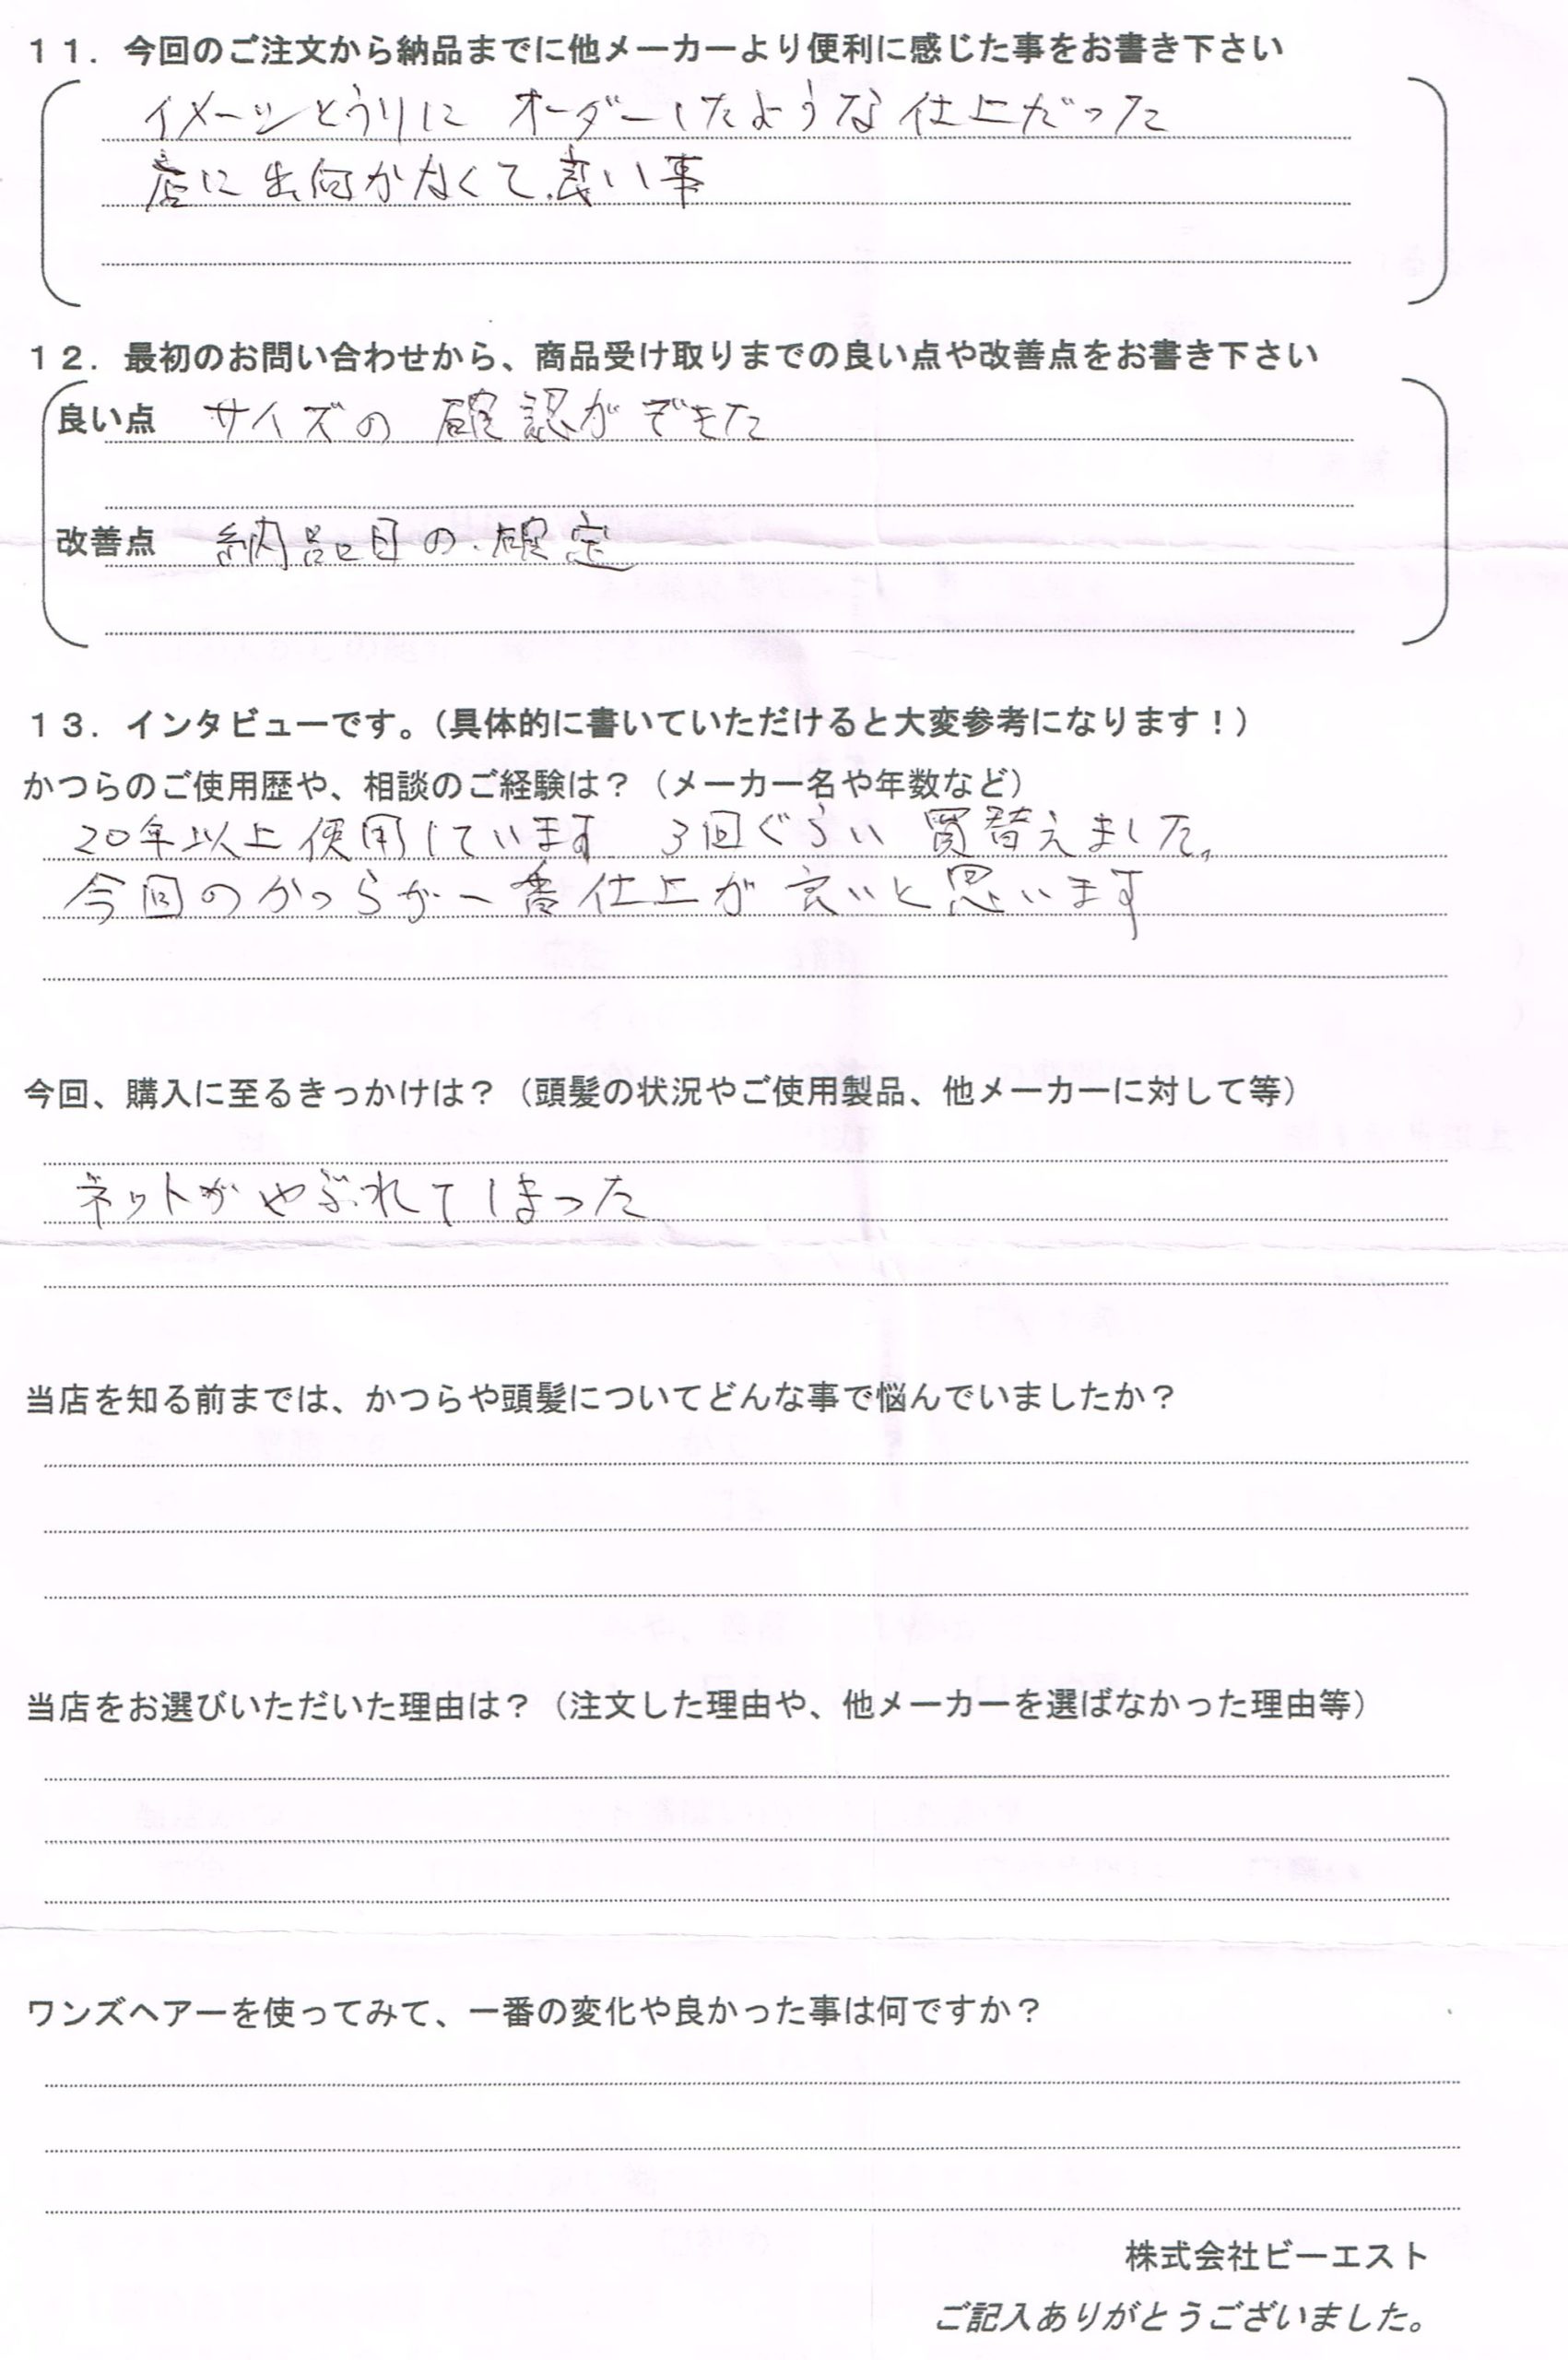 11．今回のご注文から納品までに他メーカーより便利に感じた事をお書き下さい
イメージとうりに オーダーしたような仕上だった
店に出向かなくて良い事
12．最初のお問い合わせから、商品受け取りまでの良い点や改善点をお書き下さい
良い点 サイズの 確認ができた
改善点 納品日の確定
13．インタビューです。（具体的に書いていただけると大変参考になります！）
かつらのご使用歴や、相談のご経験は？（メーカー名や年数など）
20年以上使用しています 3回ぐらい 買替えました。
今回のかつらが一番仕上が良いと思います
今回、購入に至るきっかけは？（頭髪の状況やご使用製品、他メーカーに対して等）
ネットがやぶれてしまった
当店を知る前までは、かつらや頭髪についてどんな事で悩んでいましたか？
当店をお選びいただいた理由は？（注文した理由や、他メーカーを選ばなかった理由等）
ワンズヘアーを使ってみて、一番の変化や良かった事は何ですか？
株式会社ビーエスト
ご記入ありがとうございました。